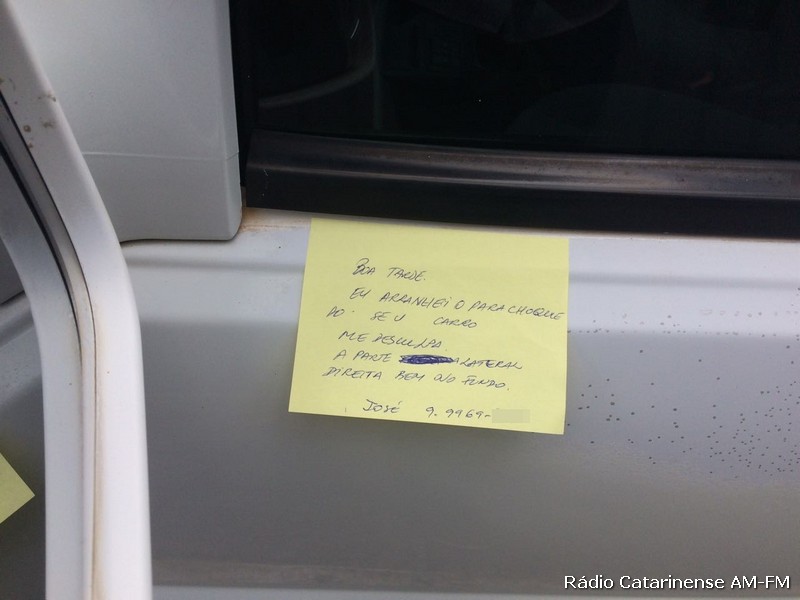 BOA TARDE.
EU ARRANHEI O PARACHOQUE
DO SEU CARRO
ME DESCULPA
A PARTE LATERAL
DIREITA BEM NO FUNDO.
JOSÉ 9.9969-
Rádio Catarinense AM-FM